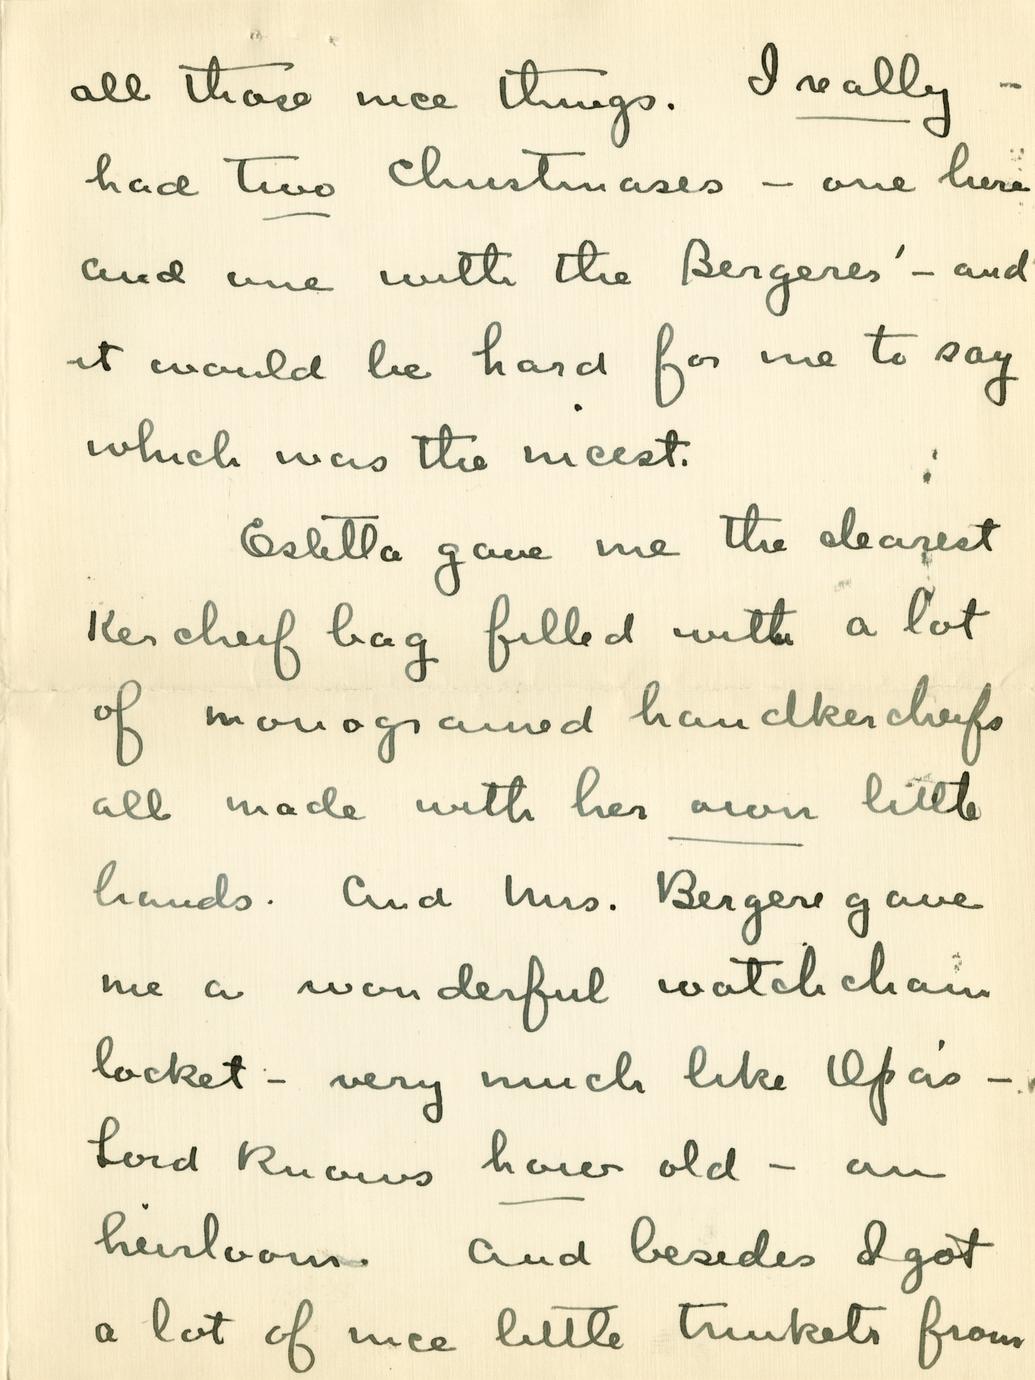 all those nice things. I really -
had two Christmases - one here
and one with the Bergeres' - and
it would be hard for me to say
which was the nicest.
Estella gave me the dearest
Kercheif bag filled with a lot
of monogramed handkercheifs
all made with her own little
hands. And Mrs. Bergere gave
me a wonderful watch chain
locket - very much like Opa's -
Lord knows how old - an
heirloom. And besides I got
a lot of nice little trinkets from